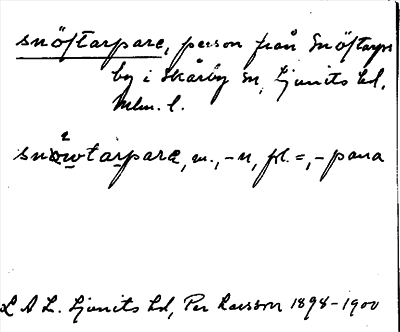 snöftarpare, person från Snöftarps
by i Skårby sn, Ljunits hd,
Mlm. l.
snöwtarpara, m., -n, pl. =, -pana
L A L. Ljunits hd, Per Larsson 1898-1900